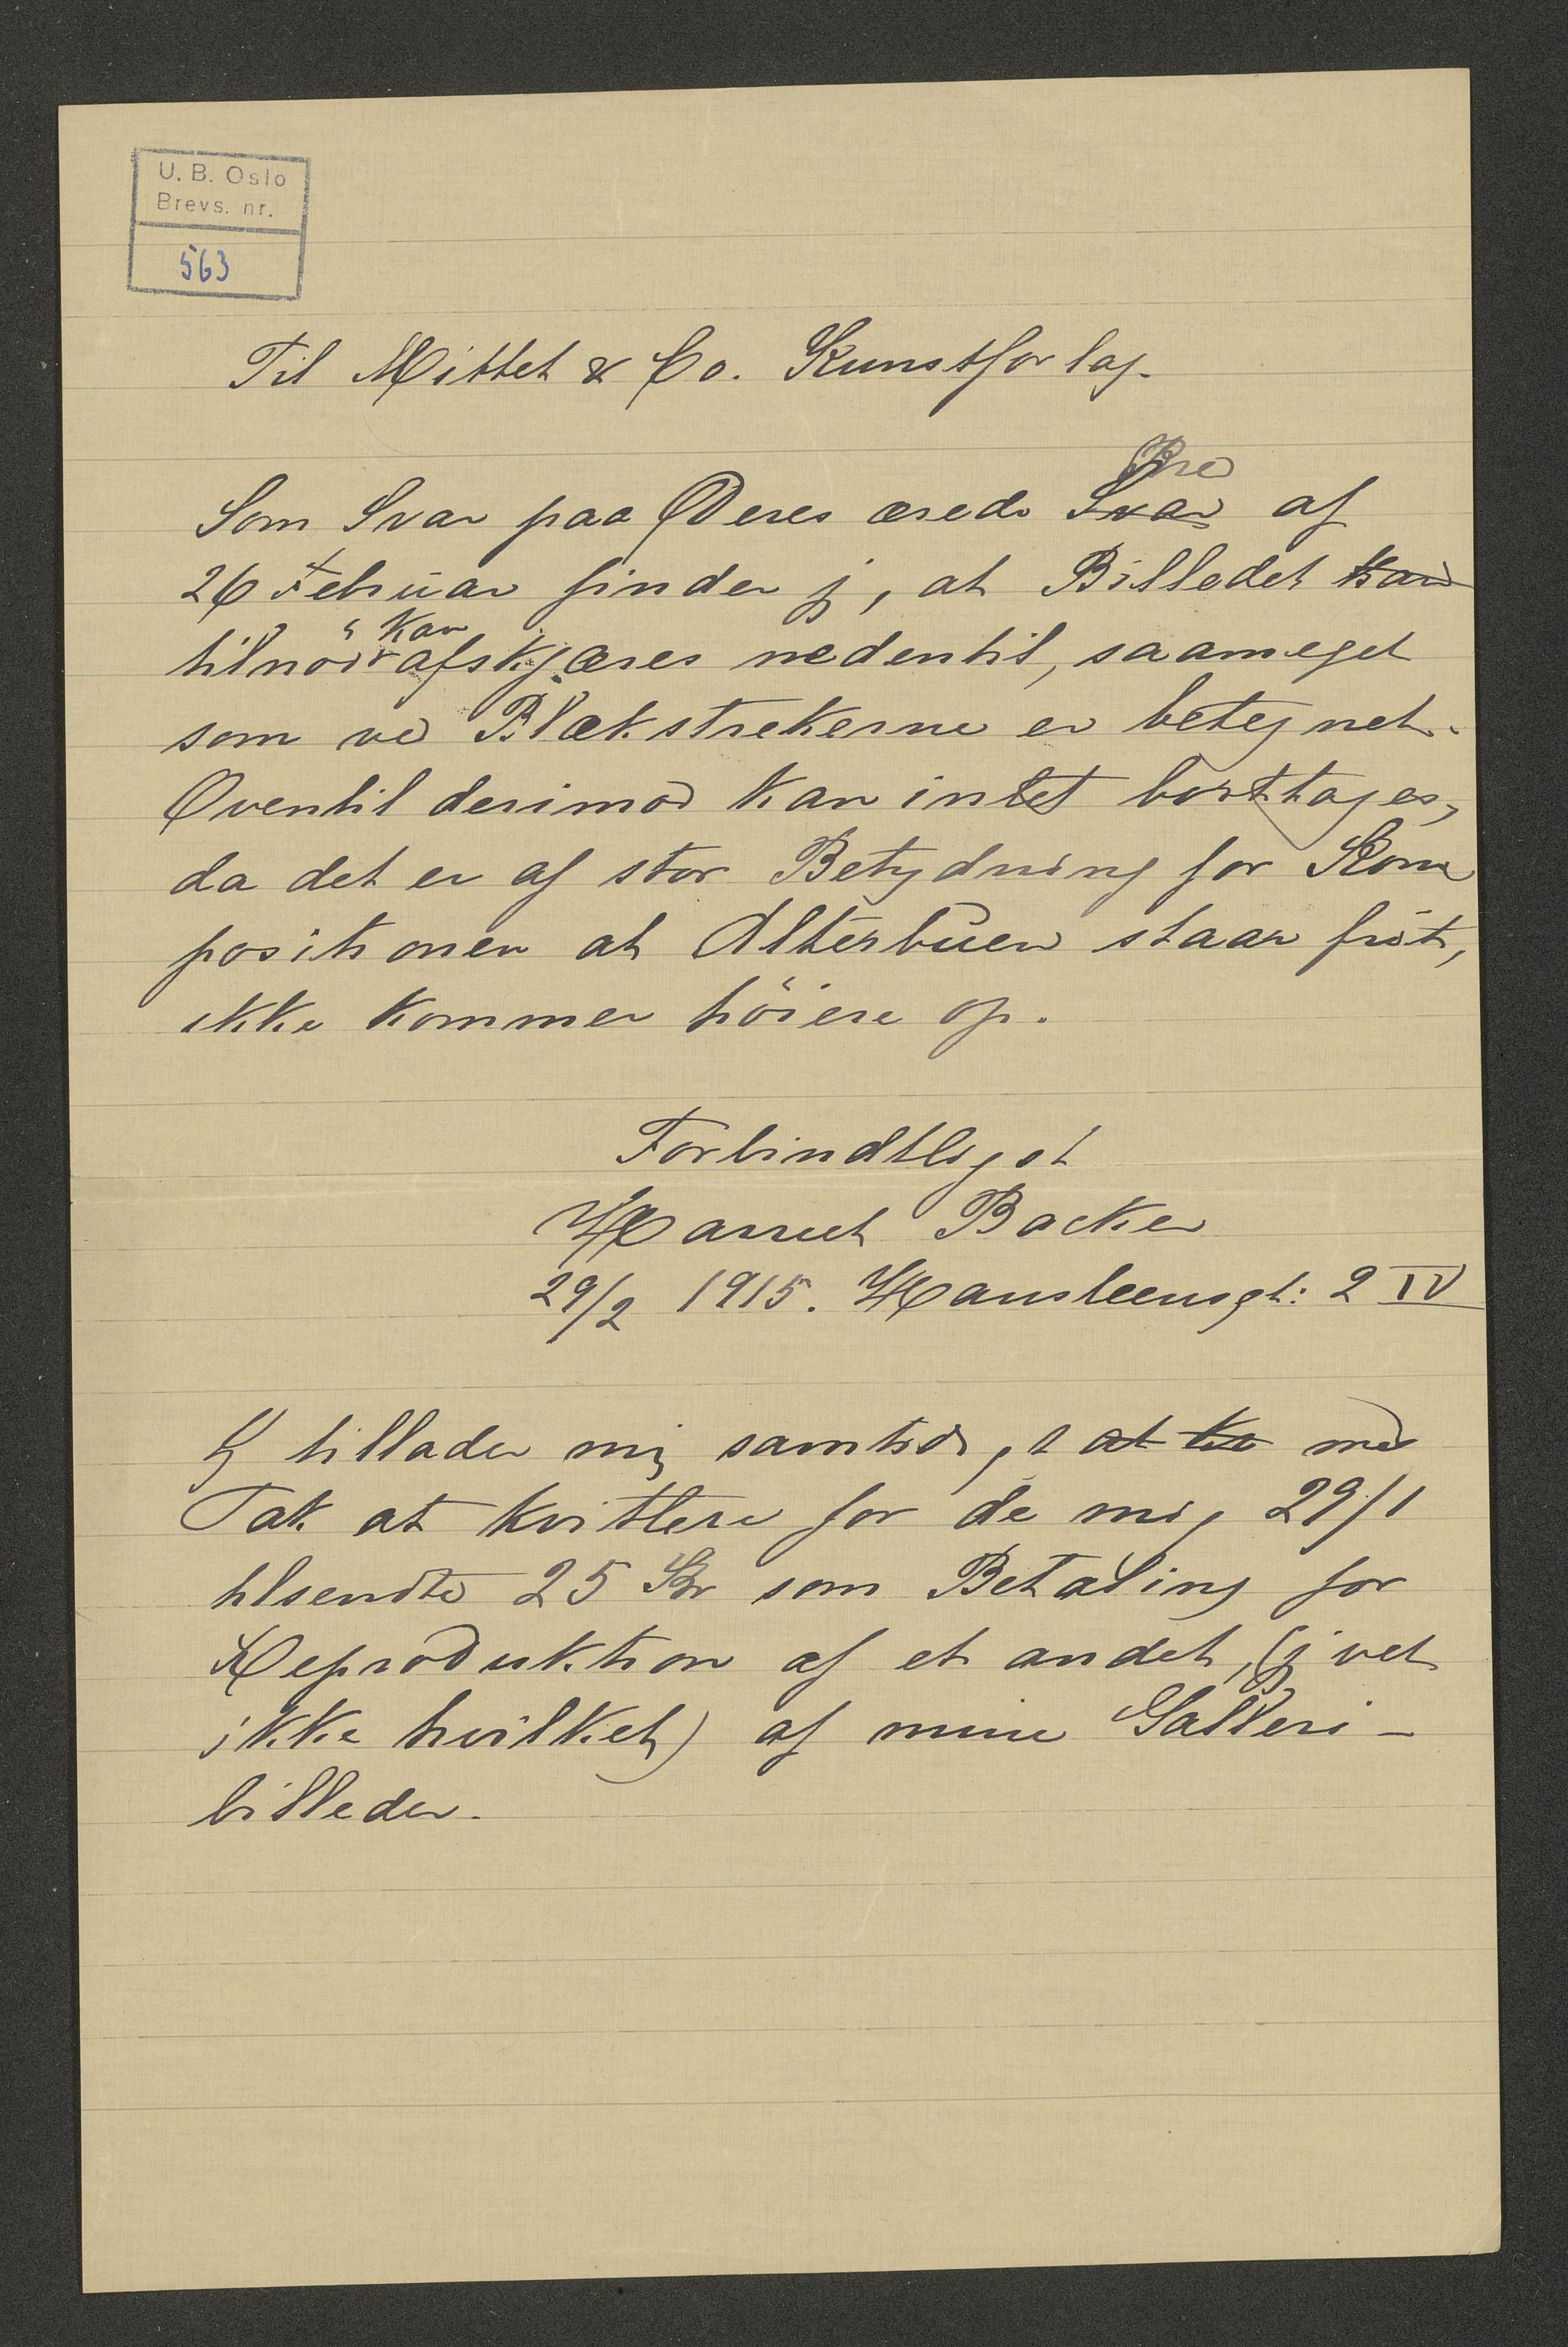 U. B. Oslo
Brevs. nr.
563
Til Mittet & Co. Kunstforlag.
Brev
Som Svar paa Deres ærede Svar af
26 Februar finder jg, at Billedet kan
kan
tilnöd afskjæres nedentil, saameget
som ved Blækstrekerne er betegnet.
Oventil derimod kan intet borttages,
da det er af stor Betydning for Kom
positionen at Alterbuen staar frit,
ikke kommer höiere op.
Forbindtligst
Harriet Backer
29/2 1915. Hansteensgt: 2 IV
Jg tillader mig samtidigt at kv med
Tak at kvittere for de mig 29/1
tilsendte 25 Kr som Betaling for
Reproduktion af et andet, (jg vet
ikke hvilket) af mine Galleri-
billeder.